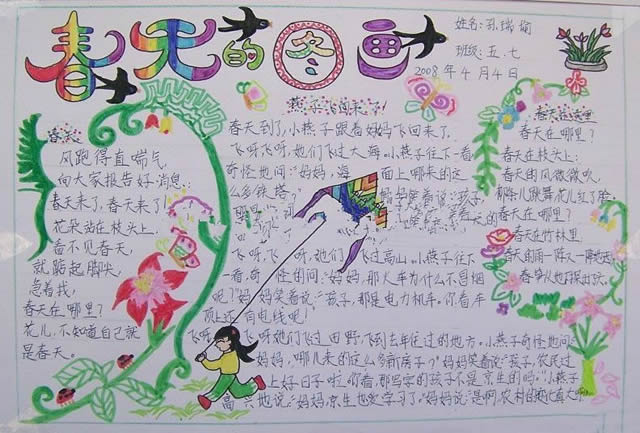 春天的图画
姓名:孙瑞瑜
班级:五.七
2008年4月4日
春天
风跑得直喘气,
向大家报告好消息,
春天来了,春天来了!
花朵站在枝头上,
看不见春天,
就踮起脚尖,
急着找!
春天在哪里?
花儿,不知道自己就
是春天。
燕子飞回来了!
春天到了,小燕子跟着妈妈飞回来了。
飞呀飞呀,她们飞过大海。小燕子往下一看
奇怪地问:"妈妈,海 面上哪来的这
么多铁塔?" 妈妈笑着说:"孩子
飞呀,飞 呀,她们飞过高山。小燕子往下
一看,奇怪地问:"妈妈,那火车为什么不冒烟
呢?"妈妈笑着说:"孩子,那是电力机车,你看车
顶上还有电线呢!
飞呀 飞呀她们飞过田野,飞到去年住过的地方,小燕子奇怪地问:
妈妈,哪儿来的这么多新房子?"妈妈笑着说:"孩子,农民过
上好日子啦,你看,那写字的孩子不是京生的吗。"小燕子
高兴地说:"妈妈,京生也爱学习了。"妈妈说:"是啊,农村
春天在哪里
春天在哪里?
春天在枝头上:
春天的风微微吹,
柳条儿跳舞,花儿红了脸
春天在哪里?
春天在竹林里
春天的雨一阵又一阵